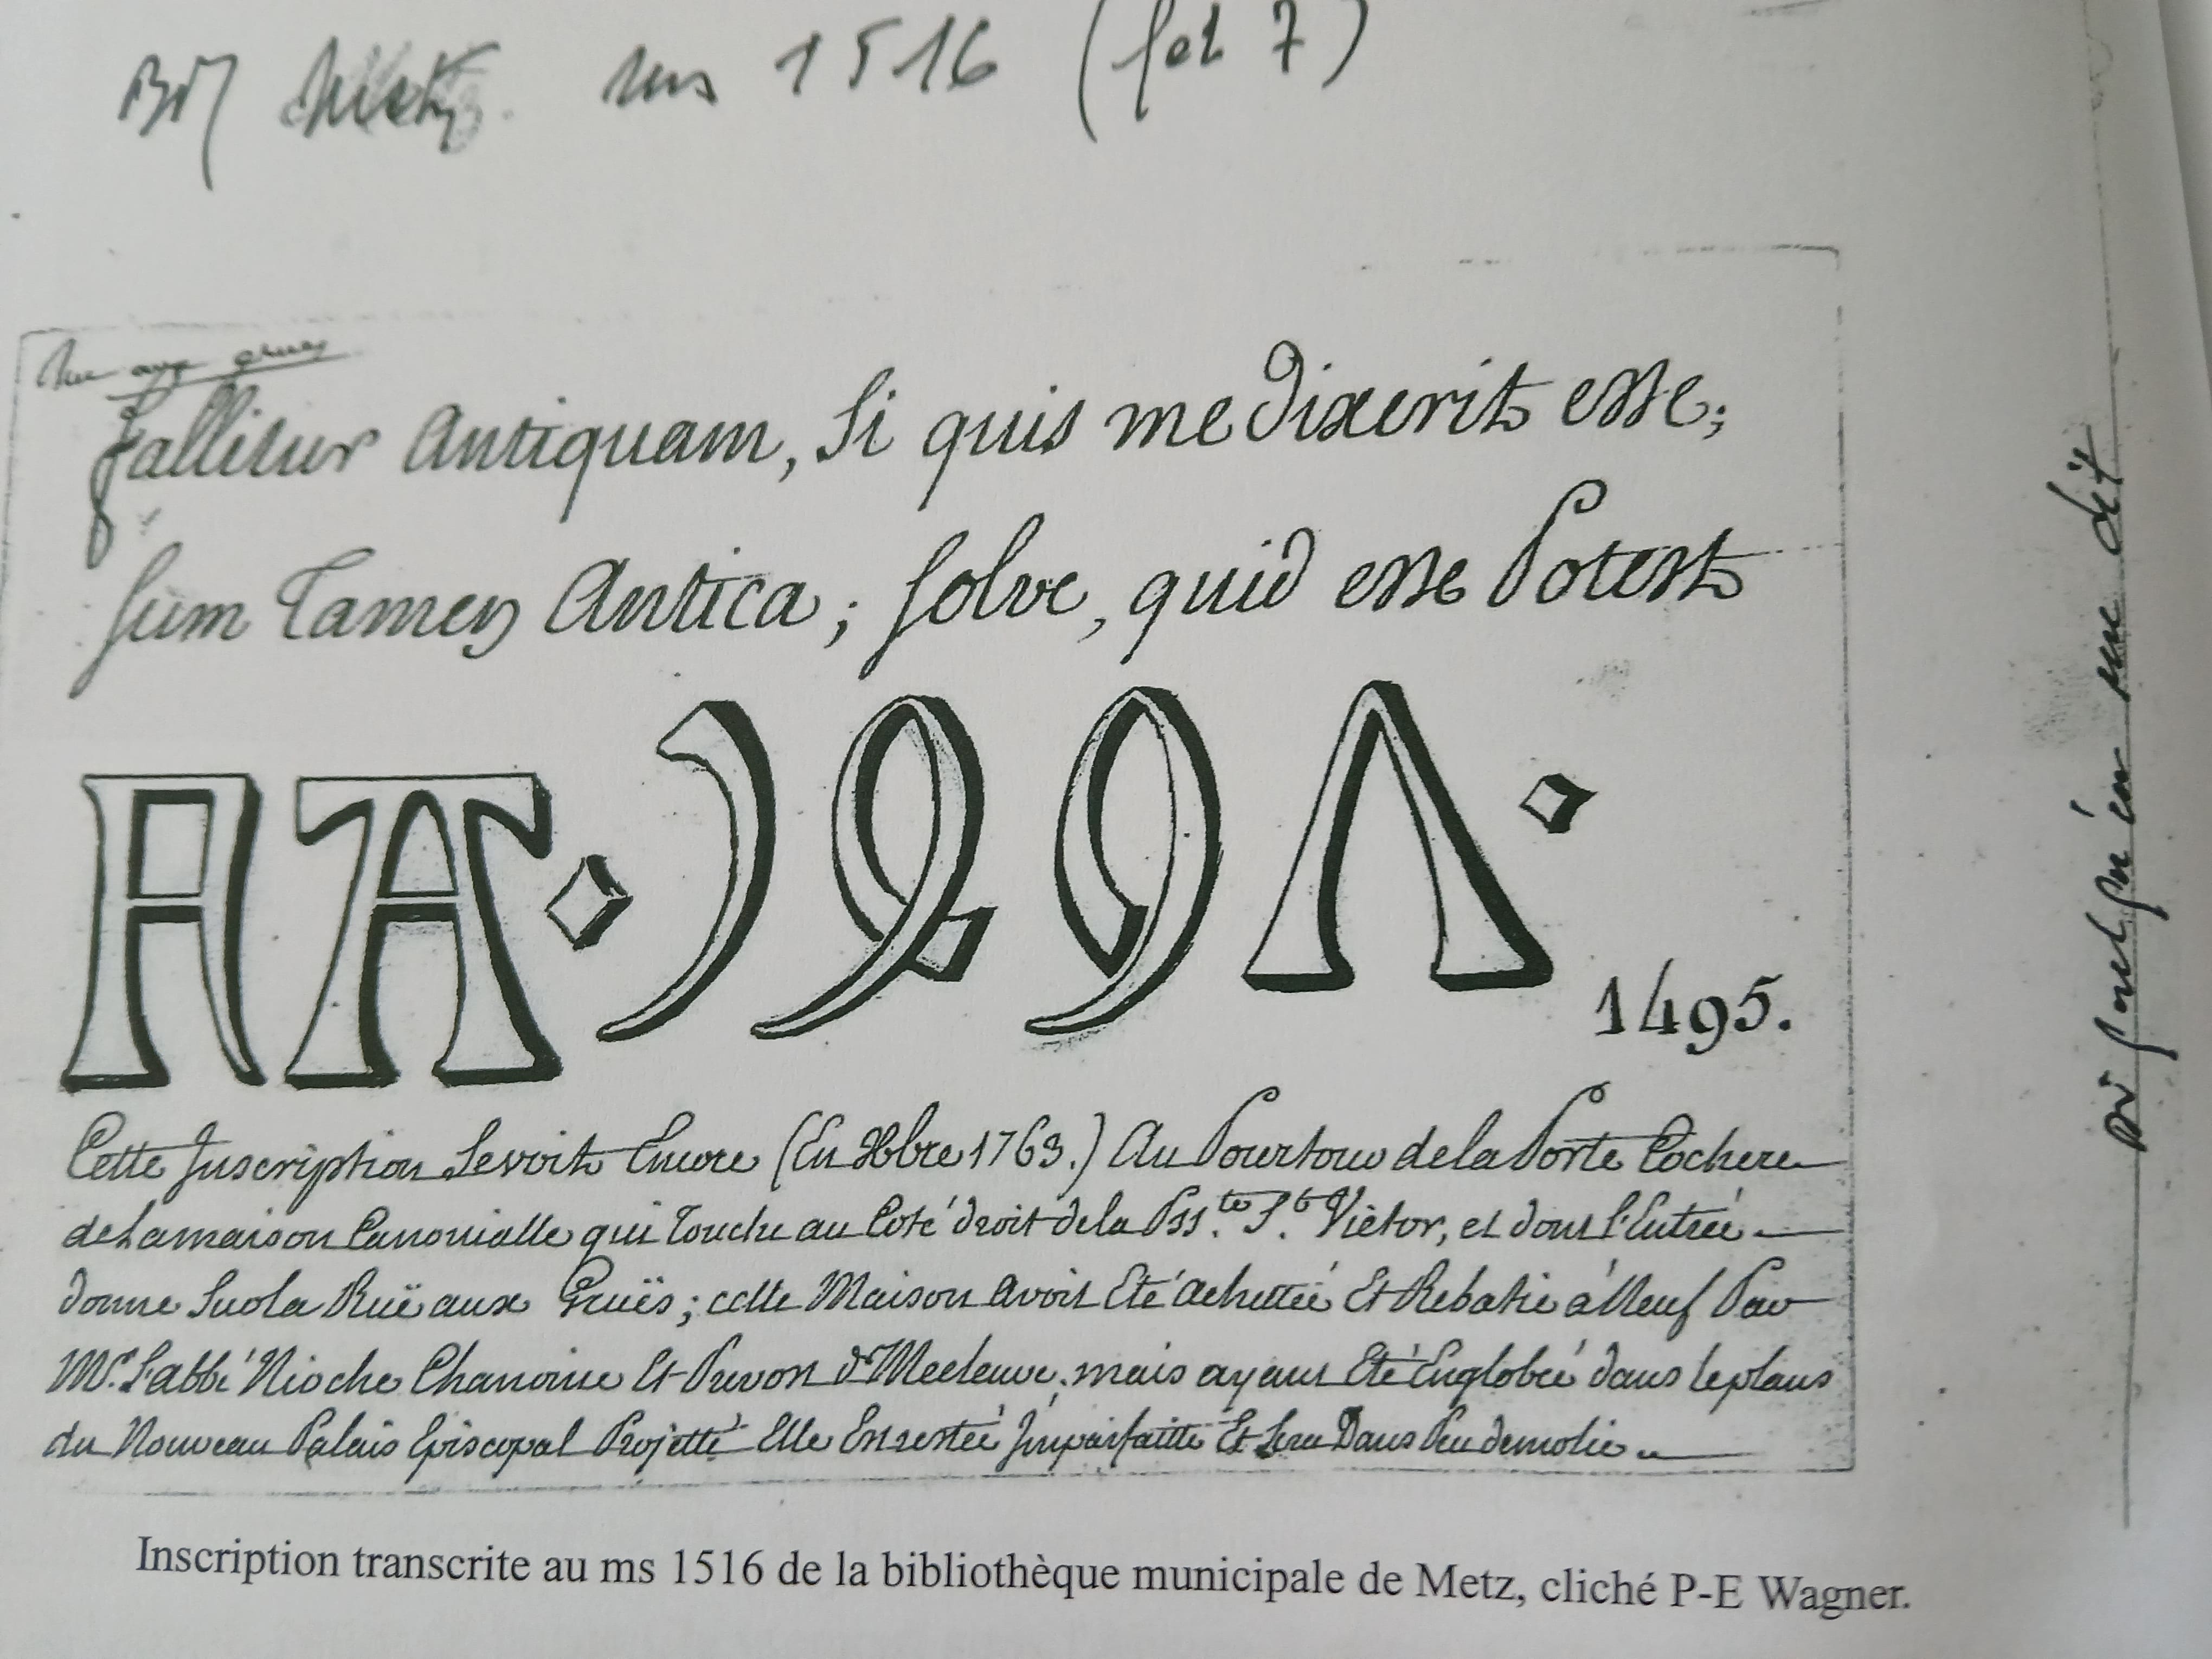 BM Metz. ms 1516 (fol 7)
Rue aux grues
fallitur Antiquam, Si quis me dixerit esse;
Sum Tamen Antica; Solve, quid esse Potest
A A 1 4 9 5
1495.
Cette Inscription Se voit Encore (En Xbre 1763.) Au Pourtour de la Porte Cochere
de La maison Canonialle qui Touche au Coté droit de la Pss.te S.t Victor, et dont l'Entrée
donne Sur la Ruë aux Gruës; cette Maison avoit Eté achettée Et Rebatie à Neuf Par
Mr. L'abbé Nioche Chanoine Et Prevost de Mecleuve, mais ayant Eté Englobée dans le plans
du Nouveau Palais Episcopal Projetté Elle Est restée Imparfaitte Et Sera Dans Peu demolie.
Inscription transcrite au ms 1516 de la bibliothèque municipale de Metz, cliché P-E Wagner.
si quelqu'un me dit